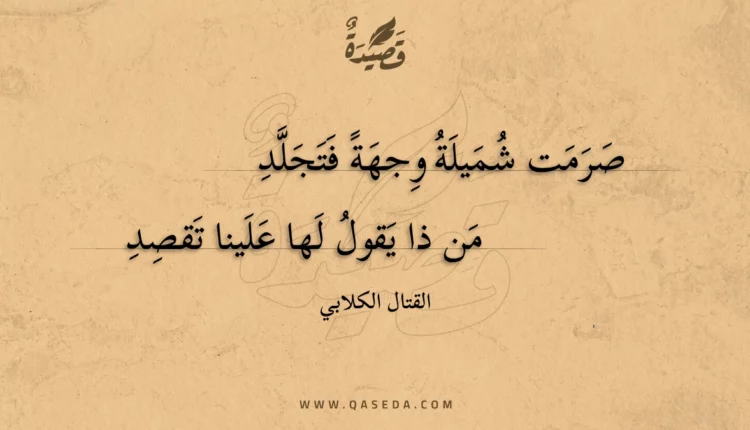 قَصِيْدَةٌ
صَرَمَت شُمَيلَةُ وِجهَةً فَتَجَلَّدِ
مَن ذا يَقولُ لَها عَلَينا تَقصِدِ
القتال الكلابي
WWW.QASEDA.COM